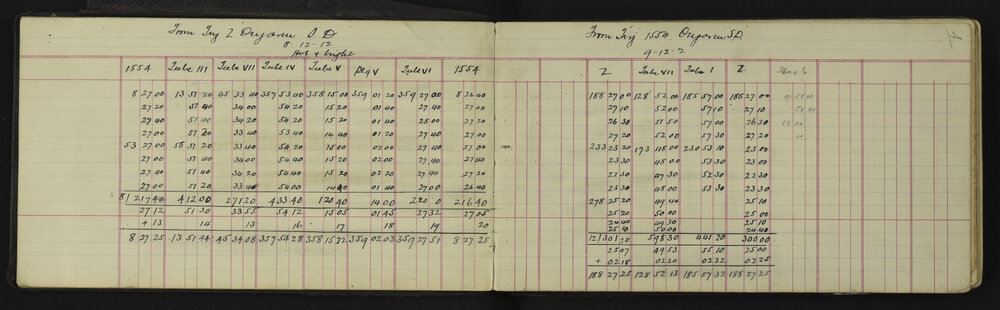 From Trig Z Ongarue S.D
8-12-12
Hot & bright
1554 Tube III Tube VII Tube IV Tube V Peg V Tube VI 1554
8 27 00 13 51 20 45 33 40 357 53 40 358 15 00 359 01 20 359 27 00 8 26 40
27 20 51 40 34 00 54 20 15 20 01 40 27 40 27 20
27 40 51 40 34 20 54 20 15 20 01 40 28 00 27 20
27 00 51 20 33 40 53 40 14 40 01 20 27 40 27 00
53 27 00 58 51 20 33 40 54 20 15 00 02 00 27 40 27 00
27 00 51 40 34 00 54 40 15 20 02 00 27 40 27 40
27 40 51 40 34 20 54 40 15 20 02 20 27 40 27 00
27 00 51 20 33 40 54 00 14 40 01 40 27 00 26 40
8/ 217 40 412 00 271 20 433 40 120 40 14 00 220 0 216 40
27 12 51 30 33 55 54 12 15 05 01 45 27 32 27 05
+ 13 14 13 16 17 18 19 20
8 27 25 13 51 44 45 34 08 357 54 28 358 15 22 359 02 03 359 27 51 8 27 25
From Trig 1554 Ongarue S.D
9-12-12
Z Tube VII Tube I Z
188 27 00 128 52 00 185 57 00 188 27 00
27 10 52 00 57 10 27 10
26 30 51 50 57 00 26 30
27 20 52 00 57 30 27 20
233 23 20 173 48 00 230 53 10 23 00
23 30 48 00 53 30 23 00
22 30 47 30 52 30 22 30
23 30 48 00 53 30 23 30
278 25 20 49 40 25 10
25 20 50 00 25 00
24 40 49 30 25 10
25 10 50 00 24 40
12/ 301 20 598 30 441 20 300 00
25 07 49 53 55 10 25 00
+ 02 18 02 20 02 22 02 25
188 27 25 128 52 13 185 57 32 188 27 25